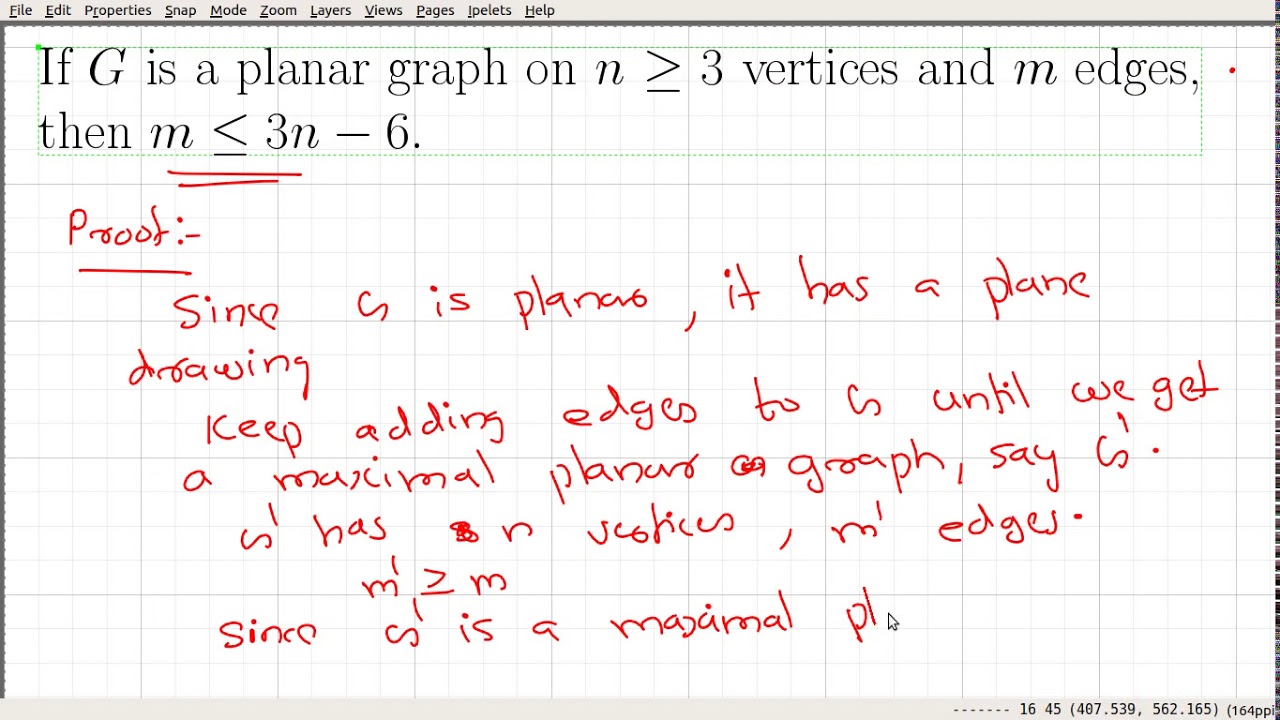 File Edit Properties Snap Mode Zoom Layers Views Pages Ipelets Help
If G is a planar graph on n ≥ 3 vertices and m edges,
then m ≤ 3n − 6.
Proof:-
Since G is planar, it has a plane
drawing
Keep adding edges to G until we get
a maximal planar graph, say G'.
G' has n vertices, m' edges.
m' ≥ m
Since G' is a maximal pl
------- 16 45 (407.539, 562.165) (164ppi